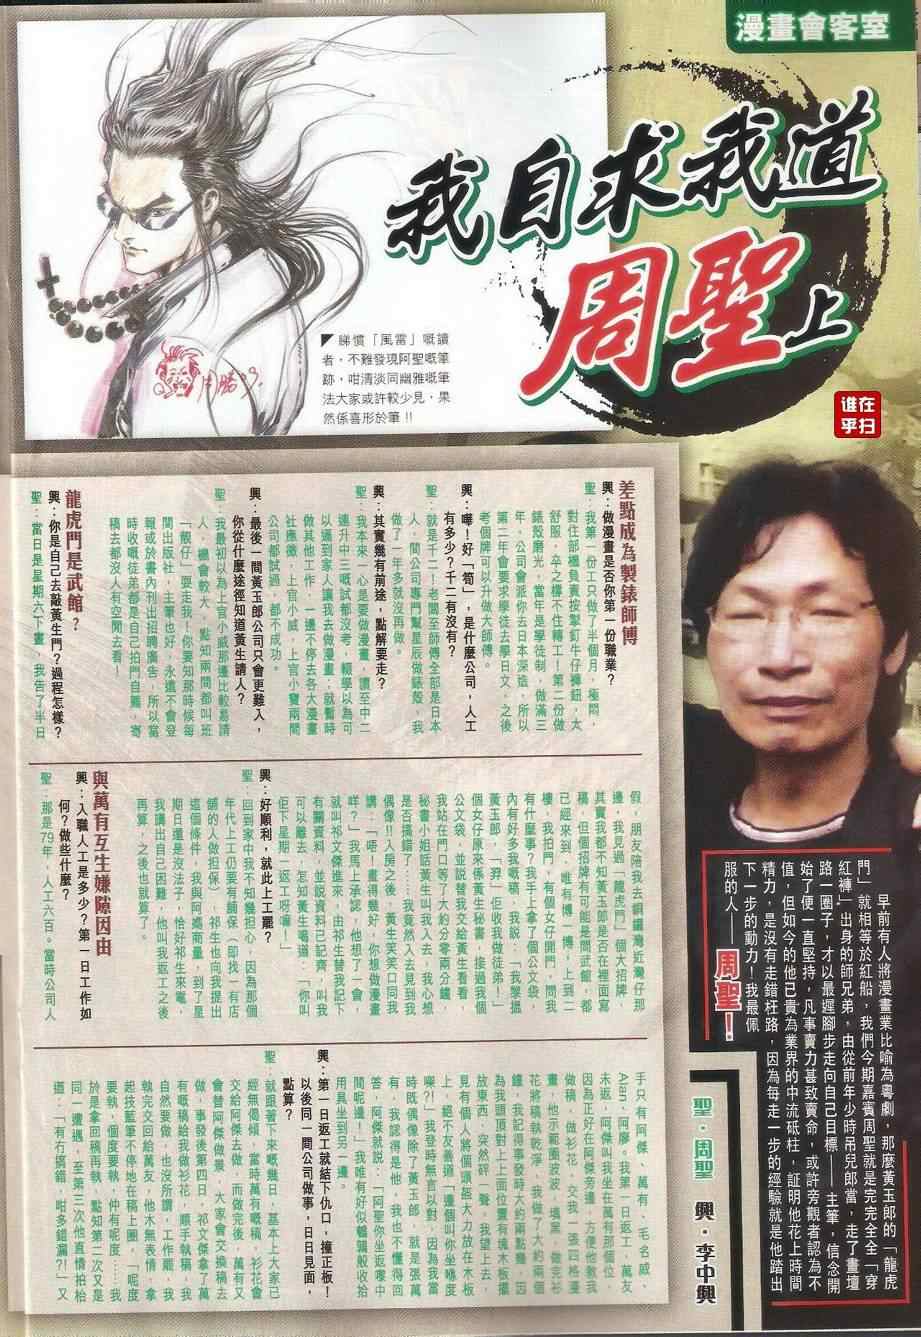 漫畫會客室
我自求我道
周聖
上
睇慣「風雷」嘅讀
者，不難發現阿聖嘅筆
跡，咁清淡同幽雅嘅筆
法大家或許較少見，果
然係喜形於筆!!
谁在
乎扫
早前有人將漫畫業比喻為粵劇，那麼黃玉郎的「龍虎
門」就相等於紅船，我們今期嘉賓周聖就是完完全全「穿
紅褲」出身的師兄弟，由從前年少時吊兒郎當，走了畫壇
路一圈子，才以最遲腳步走向自己目標——主筆，信念開
始了便一直堅持，凡事賣力甚致賣命，或許旁觀者認為不
值，但如今的他已貴為業界的中流砥柱，証明他花上時間
精力，是沒有走錯枉路，因為每走一步的經驗就是他踏出
下一步的動力！我最佩
服的人——周聖！
聖．周聖　興．李中興
差點成為製錶師傅
興：做漫畫是否你第一份職業？
聖：我第一份工只做了半個月，極悶，
對住部機負責按掣釘牛仔褲鈕，太
舒服，卒之樓不住轉工！第二份做
錶殼磨光，當年是學徒制，做滿三
年，公司會派你去日本深造，所以
第二年會要求學徒去學日文，之後
考個牌可以升做大師傅。
興：嘩！好「筍」，是什麼公司，人工
有多少？千二有沒有？
聖：就是千二！老闆至師傅全部是日本
人，間公司專門幫星辰做錶殼，我
做了一年多就沒再做。
興：其實幾有前途，點解要走？
聖：我本來一心是要做漫畫，讀至中二
連升中三嘅試都沒考，輟學以為可
以逼到家人讓我去做漫畫，就暫時
做其他工作，一邊不停去各大漫畫
社應徵，上官小威，上官小寶兩間
公司都試過，都不成功。
興：最後一間黃玉郎公司只會更難入，
你從什麼途徑知道黃生請人？
聖：我最初以為上官小威那邊比較易請
人，機會較大，點知兩間都叫班
「靚仔」耍走我！你要知那時候每
間出版社，主筆也好，永遠不會登
報或於書內刊出招聘廣告，所以當
時收嘅徒弟都是自己拍門自薦，寄
稿去都沒人有空閒去看。
龍虎門是武館？
興：你是自己去敲黃生門？過程怎樣？
聖：當日是星期六下晝，我告了半日
假，朋友陪我去銅鑼灣近灣仔那
邊，我見過「龍虎門」個大招牌，
其實我都不知黃玉郎是否在裡面寫
稿，但個招牌有可能是間武館，都
已經來到，唯有博一博，上到二
樓，我拍門，有個女仔開門，問我
有什麼事？我手上拿了個公文袋，
內有好多我嘅稿，我說：「我黎搵
黃玉郎，「羿」佢收我做徒弟！」
個女仔原來係黃生秘書，接過我個
公文袋，並説替我交給黃生看看，
我站在門口等了大約零兩分鐘，
秘書小姐話黃生叫我入去，我心想
是否搞錯了——竟然可入去見到我
偶像!!入房之後，黃生笑笑口同我
講：「唔！畫得幾好，你想做漫畫
咩？」我馬上承認，他想了一會
就叫祁文傑進來，由祁生替我記下
有關資料，並説資料已記齊，叫我
可以離去，怎知黃生喝道：「你叫
佢下星期一返工呀嘛！」
興：好順利，就此上工罷？
聖：回到家中我不知幾擔心，因為那個
年代上工仍要有舖保（即找一有店
舖的人做担保），祁生也向我提出
這個條件，我與阿媽商量，到了星
期日還是沒法子，恰好祁生來電，
我講出自己因難，他叫我返工之後
再算，之後也就算了。
與萬有互生嫌隙因由
興：入職人工是多少？第一日工作如
何？做些什麼？
聖：那是79年，人工六百。當時公司人
手只有阿傑、萬有、毛名威、
Alan、阿廖。我第一日返工，萬友
未返，阿傑叫我坐在萬有那個位，
因為正好在阿傑旁邊，方便他教我
做稿，做衫花，交我一張四格漫
畫，他示範圈波波，填黑，做完衫
花將稿執執乾淨，我做了大約兩個
鐘，我記得事發時大約兩點幾，因
為我頭頂對上上面位置有塊木板擺
放東西，突然砰一聲，我望上去，
見有個人將個頭盔大力放在木板
上，絕不友善道：「邊個叫你坐喺度
㗎？！」我登時無言以對，因為我當
時既偶像除了黃玉郎，就是張萬
有，我認得是他，我也不懂得回
答，阿傑就説：「阿聖你坐返嚟中
間呢邊！」我唯有好似驢驢般收拾
用具坐到另一邊。
興：第一日返工就結下仇口，撞正板！
以後同一間公司做事，日日見面，
點算？
聖：就跟著下來嘅幾日，基本上大家已
經無偈傾，當時萬有嘅稿，衫花會
交給阿傑去做，而做完後，萬有又
會替阿傑做做景，大家會交換稿去
做，事發後第四日，祁文傑拿了萬
有嘅稿給我做衫花，順手執稿，我
自然要做，也沒所謂，工作罷，我
執完交回給萬友，他木無表情，拿
起技藍筆不停地在稿上圈，「呢度
要執，個度要執，仲有呢度……我
於是拿回稿再執，點知第二次又是
同一遭遇，至第三次他直情拍枱
道：「有冇搞錯，咁多錯漏？！」又